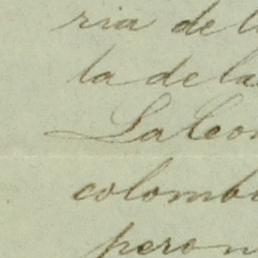 ria de l
la de la
La Con
colomb
peron